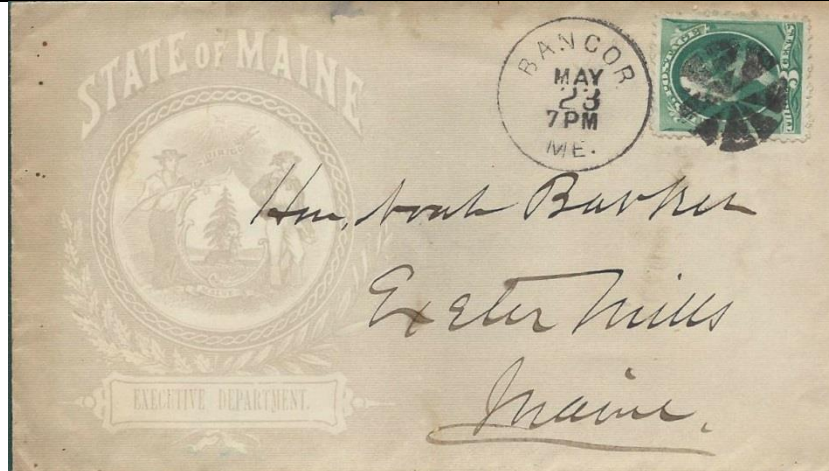 STATE OF MAINE
DIRIGO
EXECUTIVE DEPARTMENT.
BANGOR
MAY
23
7 PM
ME.
POSTAGE
3 CENTS
Hon. Noah Barker
Exeter Mills
Maine.